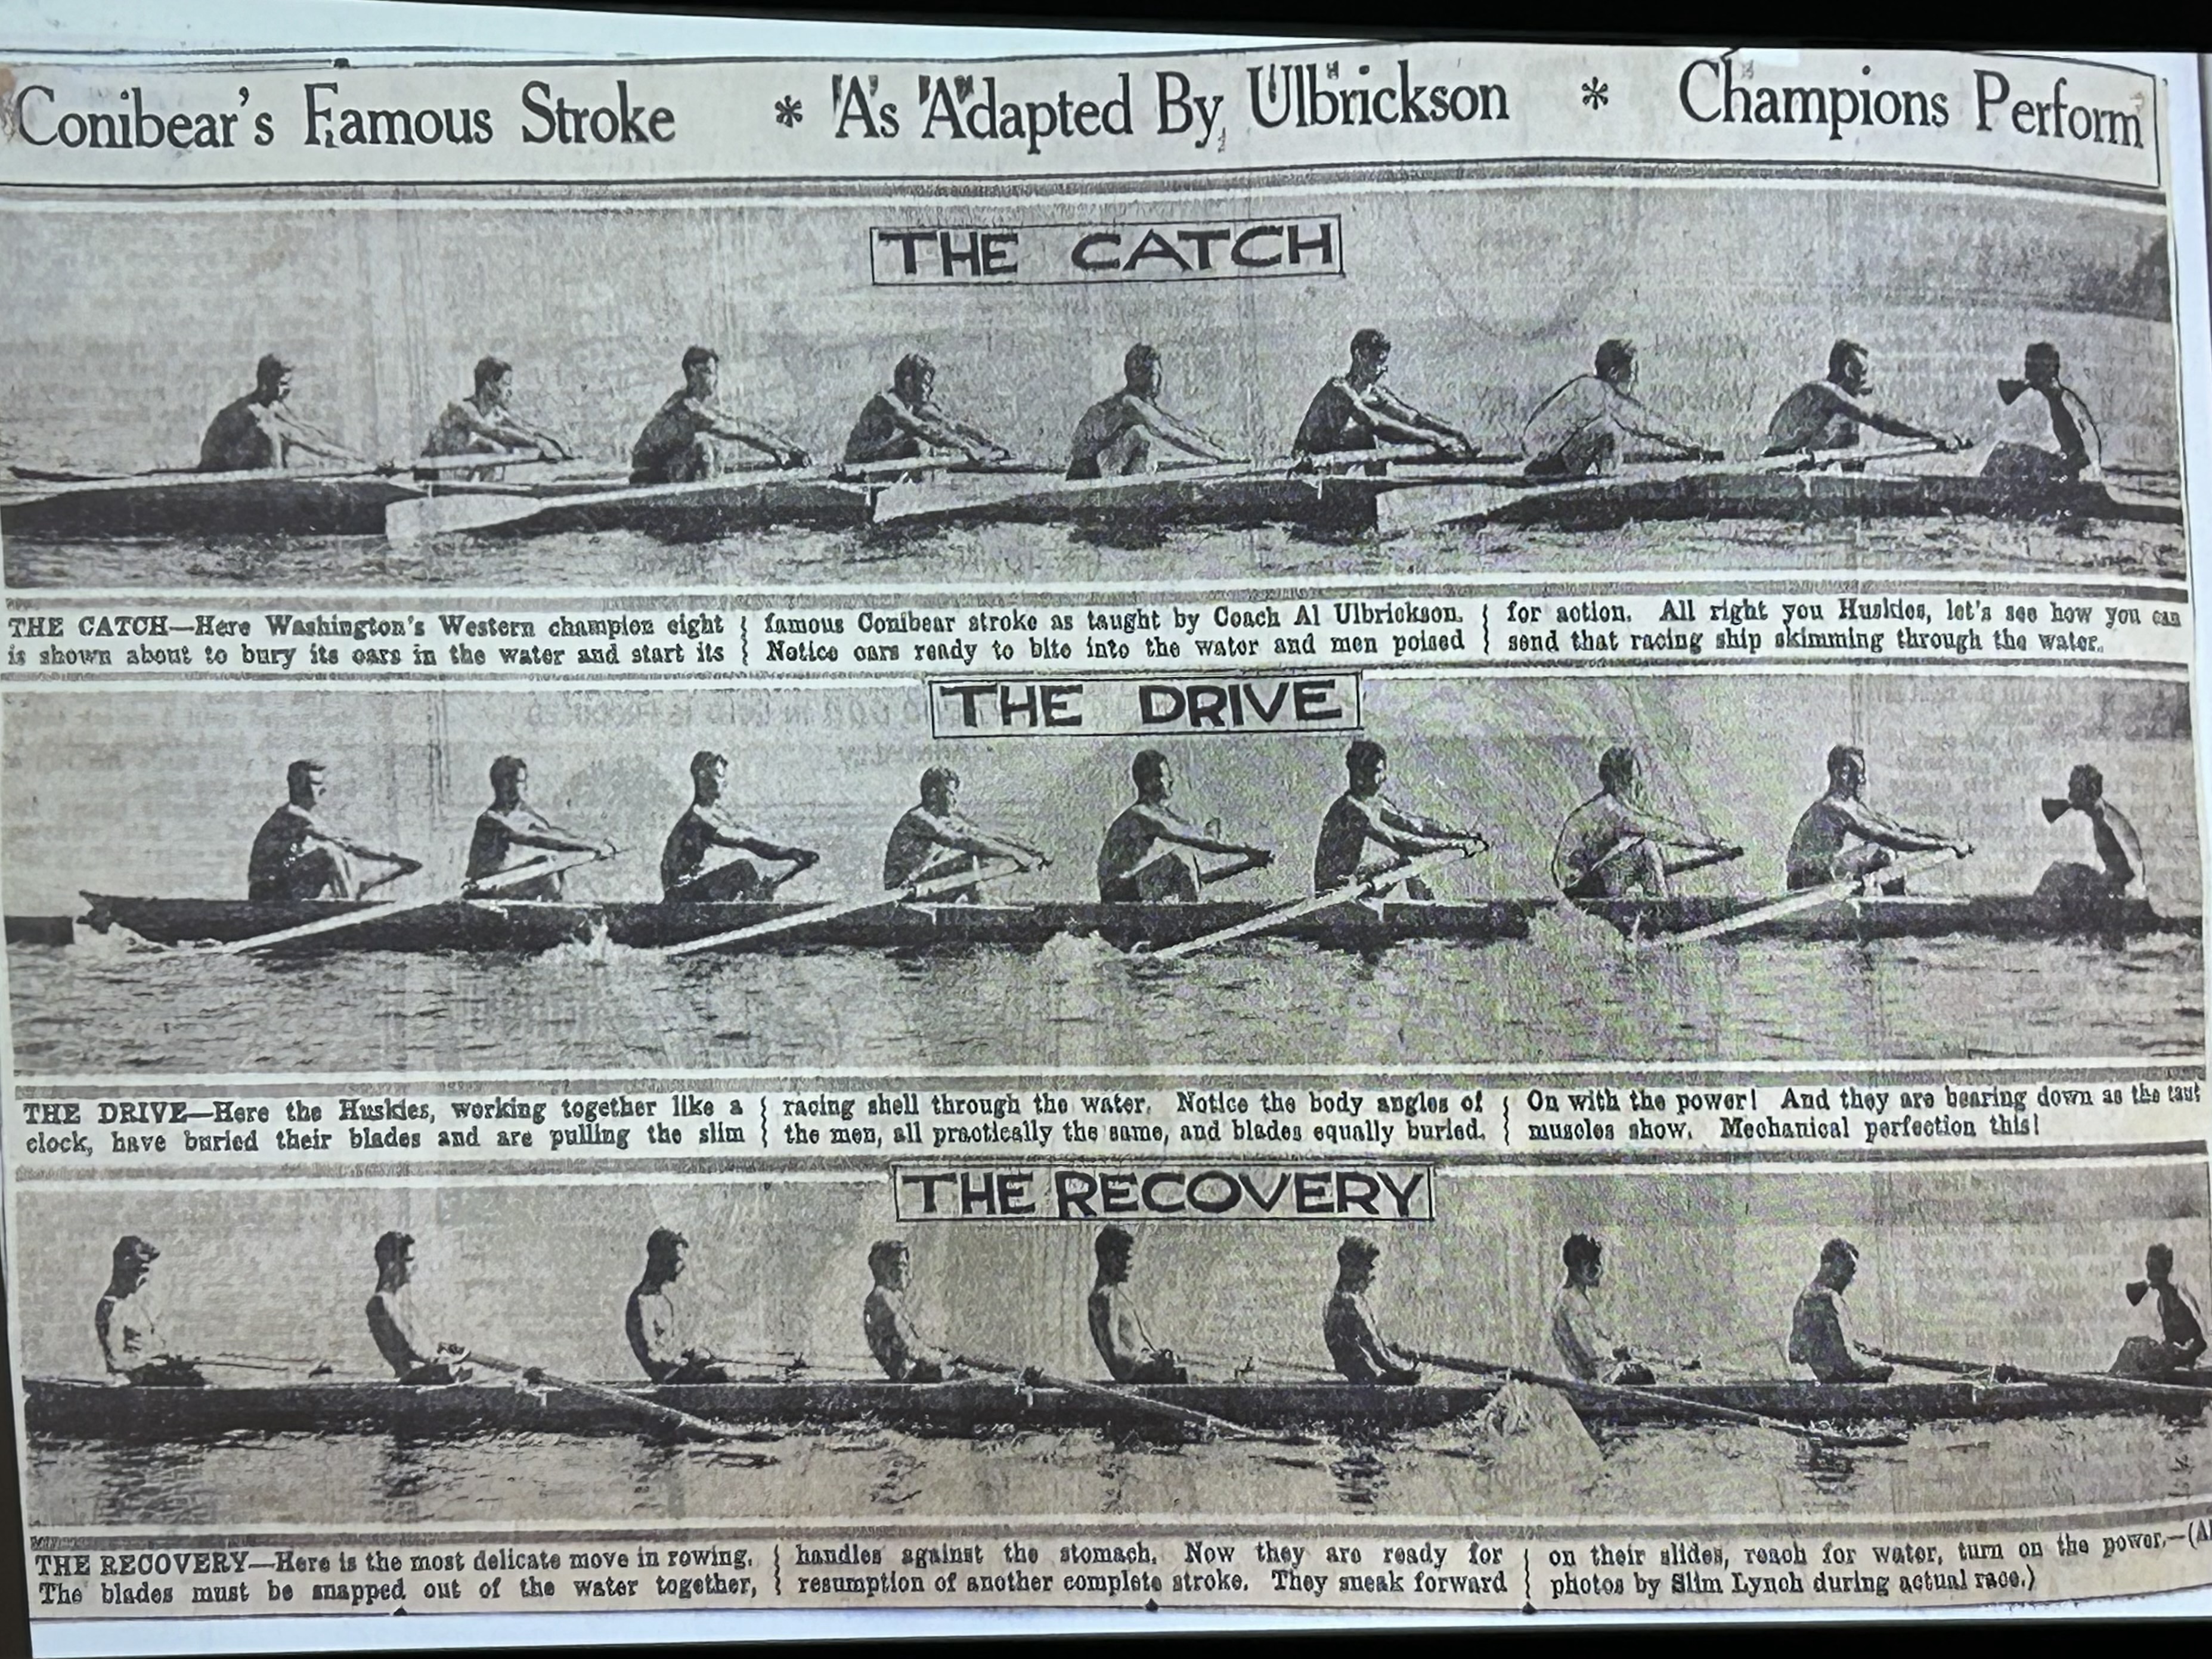 Conibear's Famous Stroke * As Adapted By Ulbrickson * Champions Perform
THE CATCH
THE CATCH—Here Washington's Western champion eight
is shown about to bury its oars in the water and start its
famous Conibear stroke as taught by Coach Al Ulbrickson.
Notice oars ready to bite into the water and men poised
for action. All right you Huskies, let's see how you can
send that racing ship skimming through the water.
THE DRIVE
THE DRIVE—Here the Huskies, working together like a
clock, have buried their blades and are pulling the slim
racing shell through the water. Notice the body angles of
the men, all practically the same, and blades equally buried.
On with the power! And they are bearing down as the taut
muscles show. Mechanical perfection this!
THE RECOVERY
THE RECOVERY—Here is the most delicate move in rowing.
The blades must be snapped out of the water together,
handles against the stomach. Now they are ready for
resumption of another complete stroke. They sneak forward
on their slides, reach for water, turn on the power.—(Al
photos by Slim Lynch during actual race.)